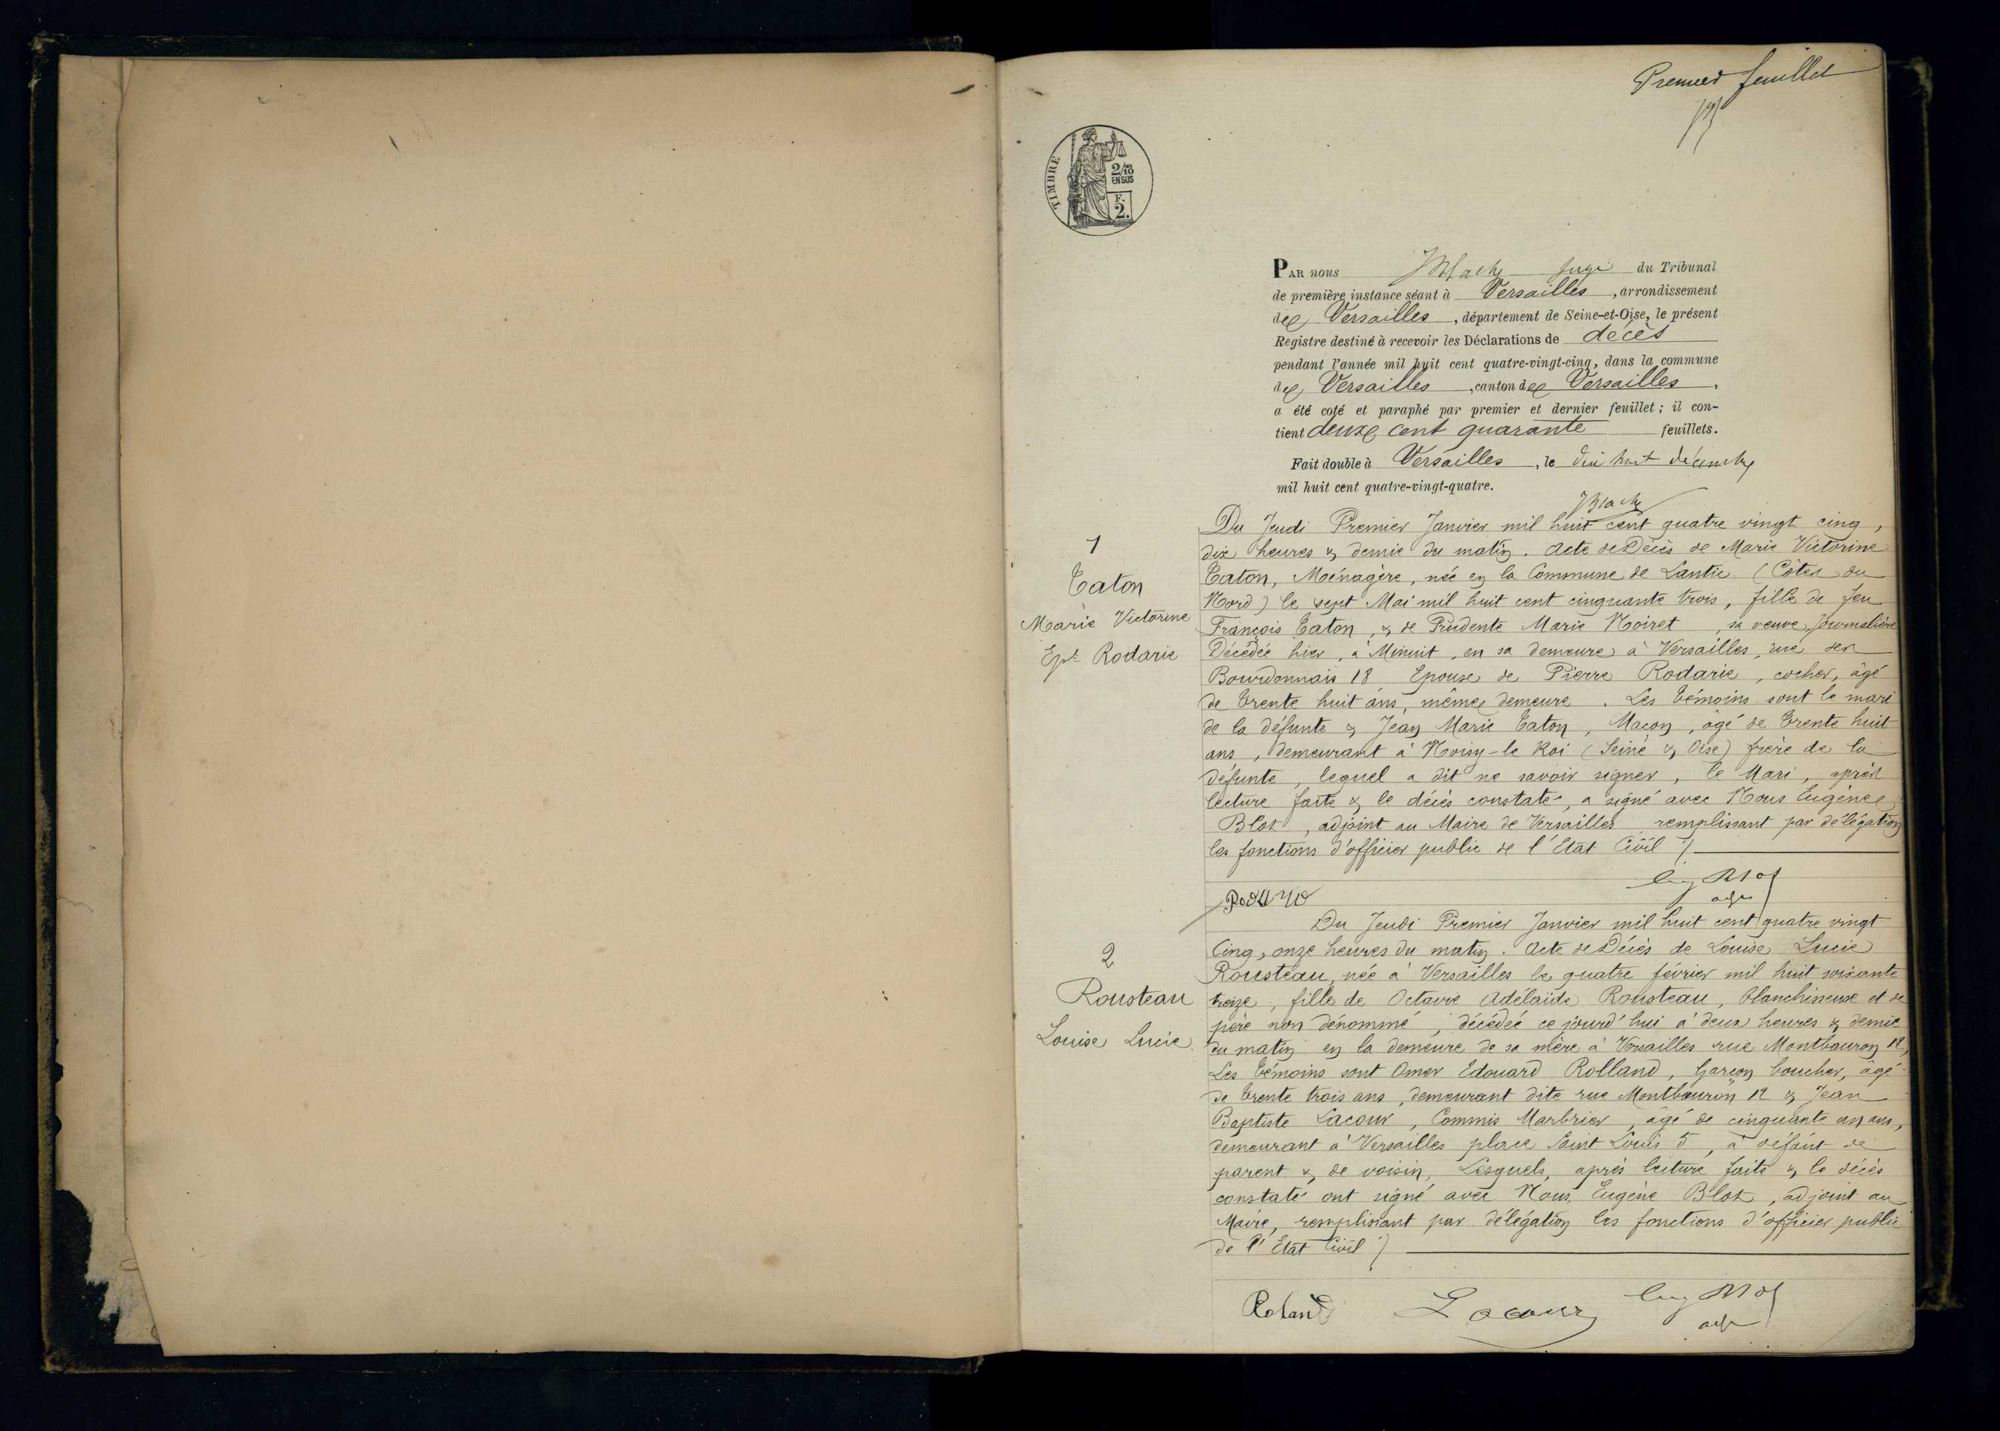 Premier feuillet
TIMBRE
2/10
EN SUS
F.
2.
PAR nous Juge du Tribunal
de première instance séant à Versailles, arrondissement
de Versailles, département de Seine-et-Oise, le présent
Registre destiné à recevoir les Déclarations de décès
pendant l'année mil huit cent quatre-vingt-cinq, dans la commune
de Versailles, canton de Versailles,
a été coté et paraphé par premier et dernier feuillet ; il con-
tient deux cent quarante feuillets.
Fait double à Versailles, le dix huit décembre
mil huit cent quatre-vingt-quatre.
1
Taton
Marie Victorine
Epe Rodarie
Du Jeudi Premier Janvier mil huit cent quatre vingt cinq,
dix heures & demie du matin. Acte de Décès de Marie Victorine
Taton, Ménagère, née en la Commune de Lantic (Côtes du
Nord) le sept Mai mil huit cent cinquante trois, fille de feu
François Taton, & de Prudente Marie Noiret, sa veuve, journalière
Décédée hier, à Minuit, en sa demeure à Versailles, rue des
Bourdonnais 18 Epouse de Pierre Rodarie, cocher, âgé
de trente huit ans, même demeure. Les témoins sont le mari
de la défunte & Jean Marie Taton, Maçon, âgé de trente huit
ans, demeurant à Noisy-le Roi (Seine & Oise) frère de la
défunte, lequel a dit ne savoir signer, le Mari, après
lecture faite & le décès constaté, a signé avec Nous Eugène
Blot, adjoint au Maire de Versailles remplissant par délégation
les fonctions d'officier public de l'Etat Civil /
Eug Blot
adj
2
Rousteau
Louise Lucie
Du Jeudi Premier Janvier mil huit cent quatre vingt
Cinq, onze heures du matin. Acte de Décès de Louise Lucie
Rousteau, née à Versailles le quatre février mil huit soixante
treize, fille de Octavie Adélaïde Rousteau, blanchisseuse et de
père non dénommé, décédée ce jourd'hui à deux heures & demie
du matin en la demeure de sa mère à Versailles rue Montbauron 12,
Les témoins sont Omer Edouard Rolland, Garçon boucher, âgé
de trente trois ans, demeurant dite rue Montbauron 12 & Jean
Baptiste Lacour, Commis Marbrier, âgé de cinquante un ans,
demeurant à Versailles place Saint Louis 5, à défaut de
parent & de voisin, Lesquels, après lecture faite & le décès
constaté ont signé avec Nous, Eugène Blot, adjoint au
Maire, remplissant par délégation les fonctions d'officier public
de l'Etat Civil /
Roland Lacour Eug Blot
adj